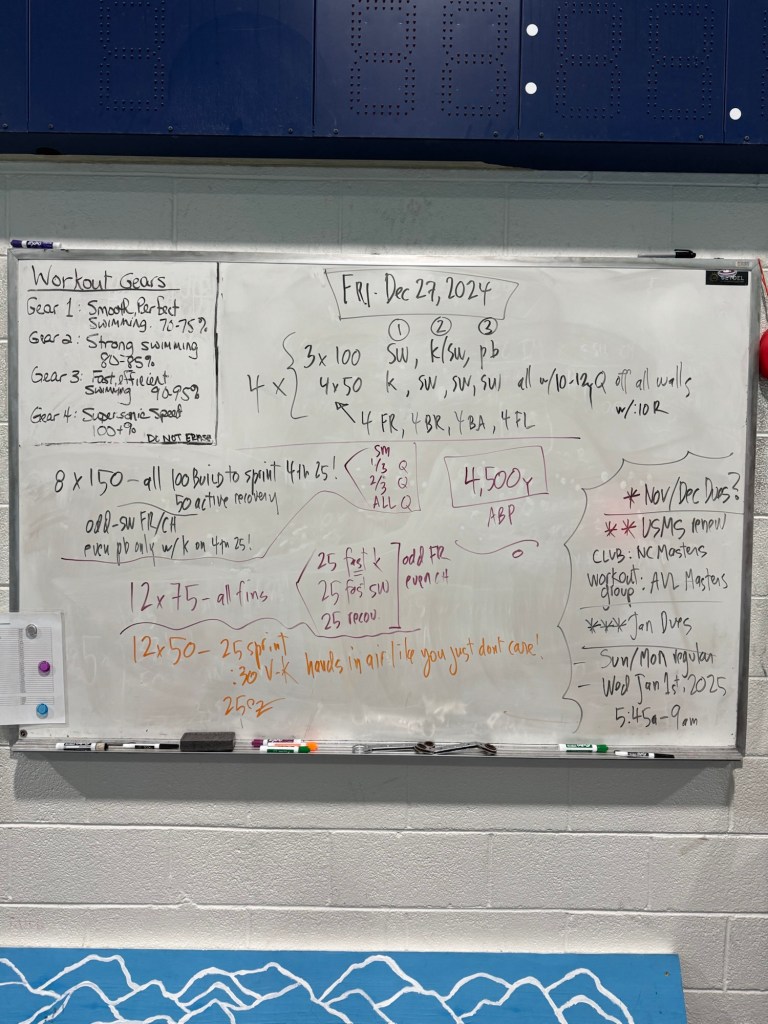 Workout Gears
Gear 1: Smooth, Perfect
Swimming. 70-75%
Gear 2: Strong swimming
80-85%
Gear 3: Fast, efficient
Swimming 90-95%
Gear 4: Supersonic Speed
100+%
DO NOT ERASE
FRI. Dec 27, 2024
① ② ③
4 x { 3 x 100 SW, K/SW, pb
4 x 50 K, SW, SW, SW all w/10-12y Q off all walls
w/:10 R
4 FR, 4 BR, 4 BA, 4 FL
8 x 150 - all 100 Build to sprint 4th 25!
50 active recovery
odd - SW FR/CH
even pb only w/ K on 4th 25!
SM
1/3 Q
2/3 Q
ALL Q
4,500y
ABP
12 x 75 - all fins
25 fast K
25 fast SW
25 recov.
odd FR
even CH
12 x 50 - 25 sprint
:30 V-K hands in air like you just dont care!
25 ez
* Nov/Dec Dues?
** USMS renew
CLUB: NC Masters
workout group: AVL Masters
*** Jan Dues
- Sun/Mon regular
- Wed Jan 1st, 2025
5:45a-9am